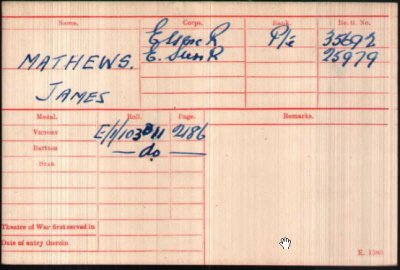 Name. Corps. Rank. Regtl. No.
MATHEWS. Essex R Pte 35692
E. Surr R 25979
JAMES
Medal. Roll. Page. Remarks.
VICTORY E/1/103B11 2186
BRITISH — do —
STAR
Theatre of War first served in
Date of entry therein
K. 1380